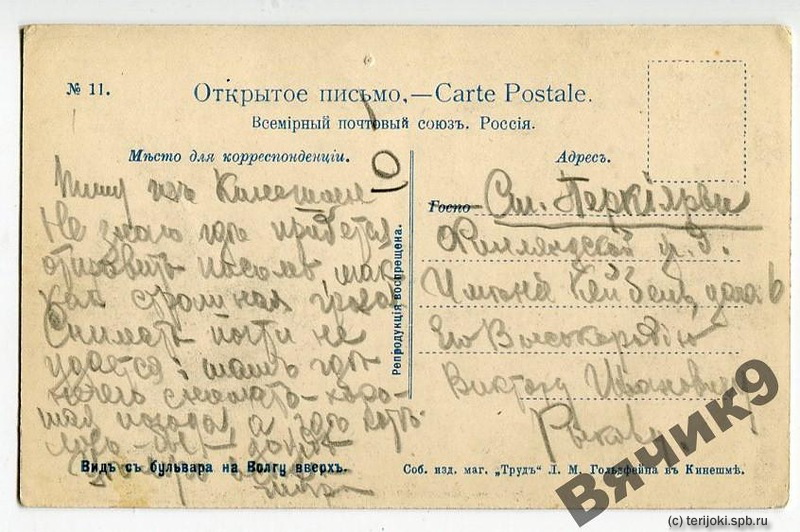 № 11.
Открытое письмо.—Carte Postale.
Всемірный почтовый союзъ. Россія.
Мѣсто для корреспонденціи.
Адресъ.
10
Пишу изъ Кинешмы
Не знаю где придется
отправить письмо так
как страшная гроза
Снимать почти не
удается: тамъ где
нельзя снимать – хоро-
шая погода а здѣсь
Видъ съ бульвара на Волгу вверхъ.
Репродукція воспрещена.
Госпо
Ст. Перкіярви
Финляндской ж. д.
Имѣніе дача 6
Его Высокородію
Виктору Ивановичу
Соб. изд. маг. „Трудъ“ Л. М. Гольдфейна въ Кинешмѣ.
Вячик9
(c) terijoki.spb.ru